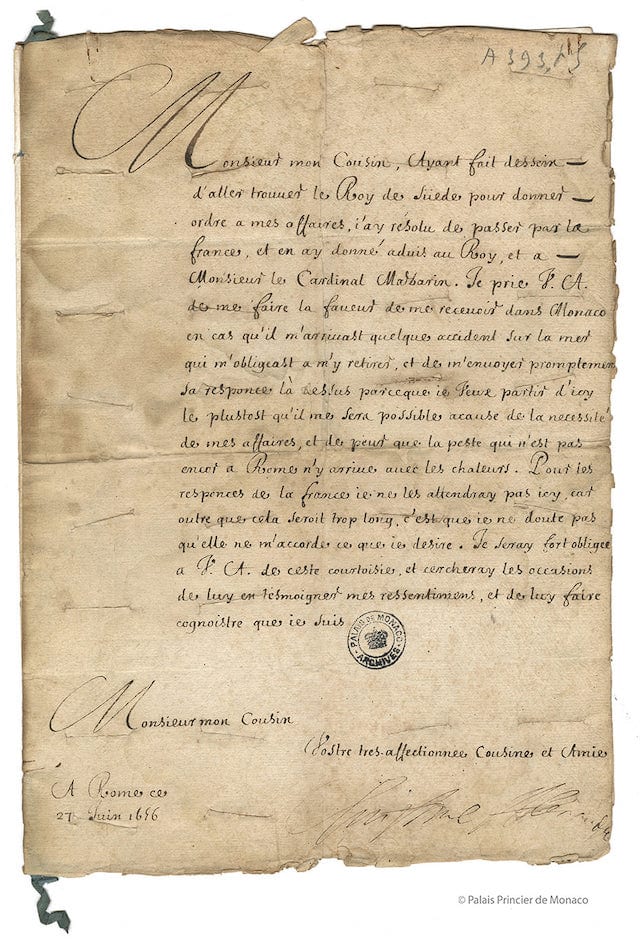 A 393, 15
Monsieur mon Cousin, Ayant fait dessein
d'aller trouver le Roy de Suede pour donner
ordre a mes affaires, i'ay résolu de passer par la
france, et en ay donné aduis au Roy, et a
Monsieur le Cardinal Mazarin. Je prie V. A.
de me faire la faueur de me receuoir dans Monaco
en cas qu'il m'arriuast quelque accident sur la mer
qui m'obligeast a m'y retirer, et de m'enuoyer promptement
sa responce là dessus parceque ie veux partir d'icy
le plustost qu'il me sera possible acause de la necessité
de mes affaires, et de peur que la peste qui n'est pas
encor a Rome n'y arriue auec les chaleurs. Pour les
responces de la france ie ne les attendray pas icy, car
outre que cela seroit trop long, c'est que ie ne doute pas
qu'elle ne m'accorde ce que ie desire. Je seray fort obligée
a V. A. de ceste courtoisie, et cercheray les occasions
de luy en tesmoigner mes ressentimens, et de luy faire
cognoistre que ie suis
PALAIS DE MONACO
ARCHIVES
Monsieur mon Cousin
Vostre tres-affectionnee Cousine et Amie
A Rome ce
27 Juin 1656
© Palais Princier de Monaco